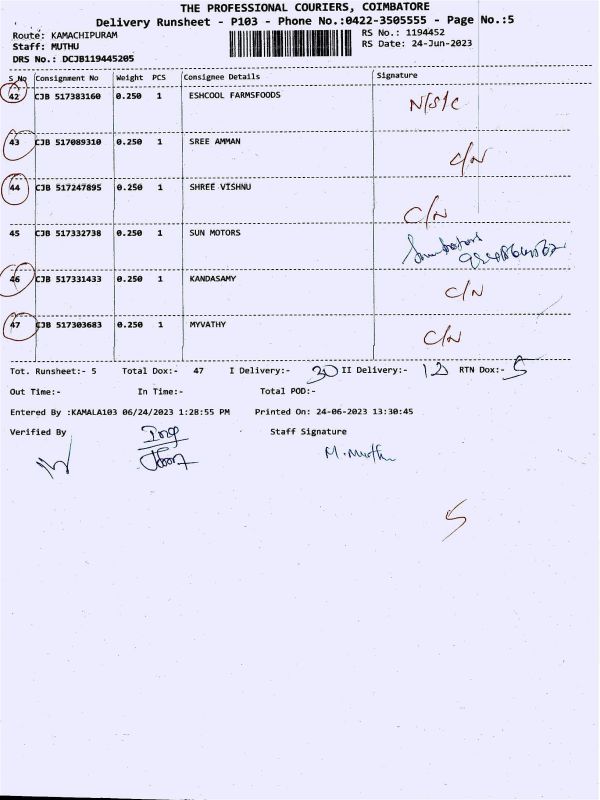 THE PROFESSIONAL COURIERS, COIMBATORE
Delivery Runsheet - P103 - Phone No.:0422-3505555 - Page No.:5
Route: KAMACHIPURAM RS No.: 1194452
Staff: MUTHU RS Date: 24-Jun-2023
DRS No.: DCJB119445205
S_No Consignment No Weight PCS Consignee Details Signature
42 CJB 517383160 0.250 1 ESHCOOL FARMSFOODS N/S/C
43 CJB 517089310 0.250 1 SREE AMMAN C/N
44 CJB 517247895 0.250 1 SHREE VISHNU C/N
45 CJB 517332738 0.250 1 SUN MOTORS
46 CJB 517331433 0.250 1 KANDASAMY C/N
47 CJB 517303683 0.250 1 MYVATHY C/N
Tot. Runsheet:- 5 Total Dox:- 47 I Delivery:- 30 II Delivery:- 12 RTN Dox:- 5
Out Time:- In Time:- Total POD:-
Entered By :KAMALA103 06/24/2023 1:28:55 PM Printed On: 24-06-2023 13:30:45
Verified By Staff Signature
M.Muth
5